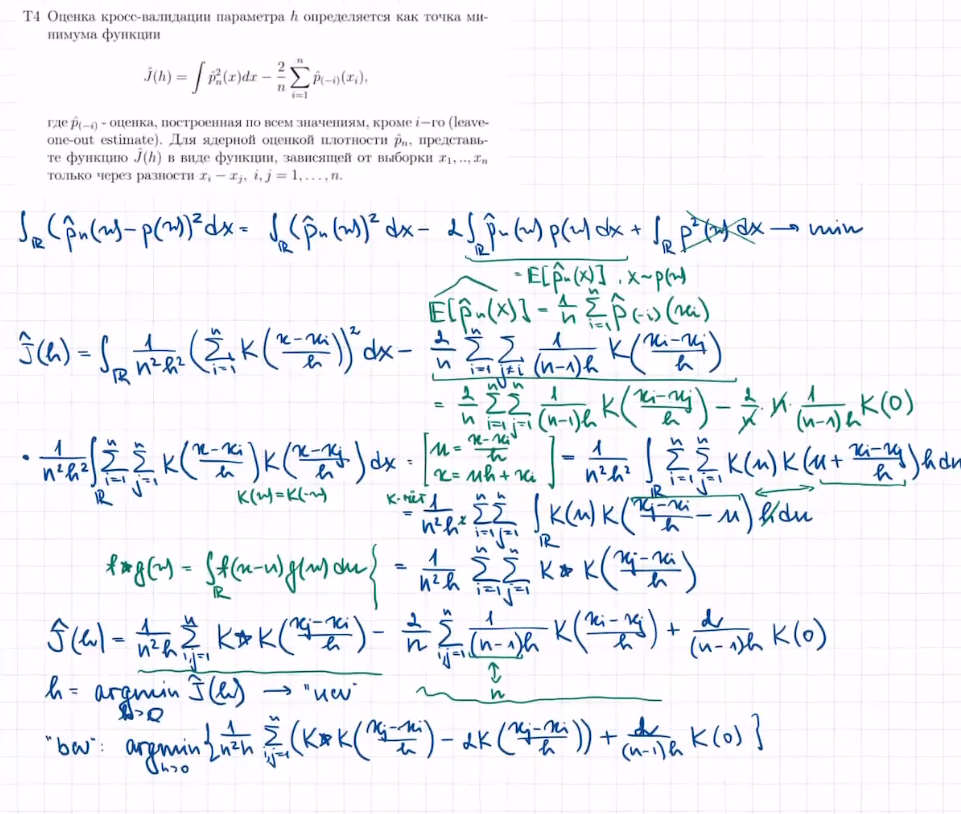 Т4 Оценка кросс-валидации параметра h определяется как точка ми-
нимума функции
Ĵ(h) = ∫ p̂²ₙ(x)dx − 2/n ∑ⁿᵢ₌₁ p̂₍₋ᵢ₎(xᵢ),
где p̂₍₋ᵢ₎ - оценка, построенная по всем значениям, кроме i−го (leave-
one-out estimate). Для ядерной оценкой плотности p̂ₙ, представь-
те функцию Ĵ(h) в виде функции, зависящей от выборки x₁, .., xₙ
только через разности xᵢ − xⱼ, i, j = 1, . . . , n.
∫_ℝ (p̂ₙ(x) − p(x))² dx = ∫_ℝ (p̂ₙ(x))² dx − 2∫_ℝ p̂ₙ(x) p(x) dx + ∫_ℝ p²(x) dx → min
= E[p̂ₙ(X)], X ~ p(x)
E[p̂ₙ(X)] = 1/n ∑ⁿᵢ₌₁ p̂₍₋ᵢ₎(xᵢ)
Ĵ(h) = ∫_ℝ 1/(n²h²) (∑ⁿᵢ₌₁ K((x−xᵢ)/h))² dx − 2/n ∑ⁿᵢ₌₁ ∑_{j≠i} 1/((n−1)h) K((xᵢ−xⱼ)/h)
= 2/n ∑ⁿᵢ₌₁ ∑ⁿⱼ₌₁ 1/((n−1)h) K((xᵢ−xⱼ)/h) − 2/n · n · 1/((n−1)h) K(0)
• 1/(n²h²) ∫_ℝ ∑ⁿᵢ₌₁ ∑ⁿⱼ₌₁ K((x−xᵢ)/h) K((x−xⱼ)/h) dx = [u = (x−xᵢ)/h x = uh + xᵢ] = 1/(n²h²) ∫_ℝ ∑ⁿᵢ₌₁ ∑ⁿⱼ₌₁ K(u) K(u + (xᵢ−xⱼ)/h) h du
K(u) = K(−u)
K-чёт = 1/(n²h²) ∑ⁿᵢ₌₁ ∑ⁿⱼ₌₁ ∫_ℝ K(u) K((xⱼ−xᵢ)/h − u) h du
f*g(x) = ∫_ℝ f(x−u) g(u) du } = 1/(n²h) ∑ⁿᵢ₌₁ ∑ⁿⱼ₌₁ K*K((xⱼ−xᵢ)/h)
Ĵ(h) = 1/(n²h) ∑ⁿᵢ,ⱼ₌₁ K*K((xⱼ−xᵢ)/h) − 2/n ∑ⁿᵢ,ⱼ₌₁ 1/((n−1)h) K((xᵢ−xⱼ)/h) + 2/((n−1)h) K(0)
n
h = argmin_{h>0} Ĵ(h) → "ucv"
"bw": argmin_{h>0} {1/(n²h) ∑ⁿᵢ,ⱼ₌₁ (K*K((xⱼ−xᵢ)/h) − 2K((xⱼ−xᵢ)/h)) + 2/((n−1)h) K(0)}